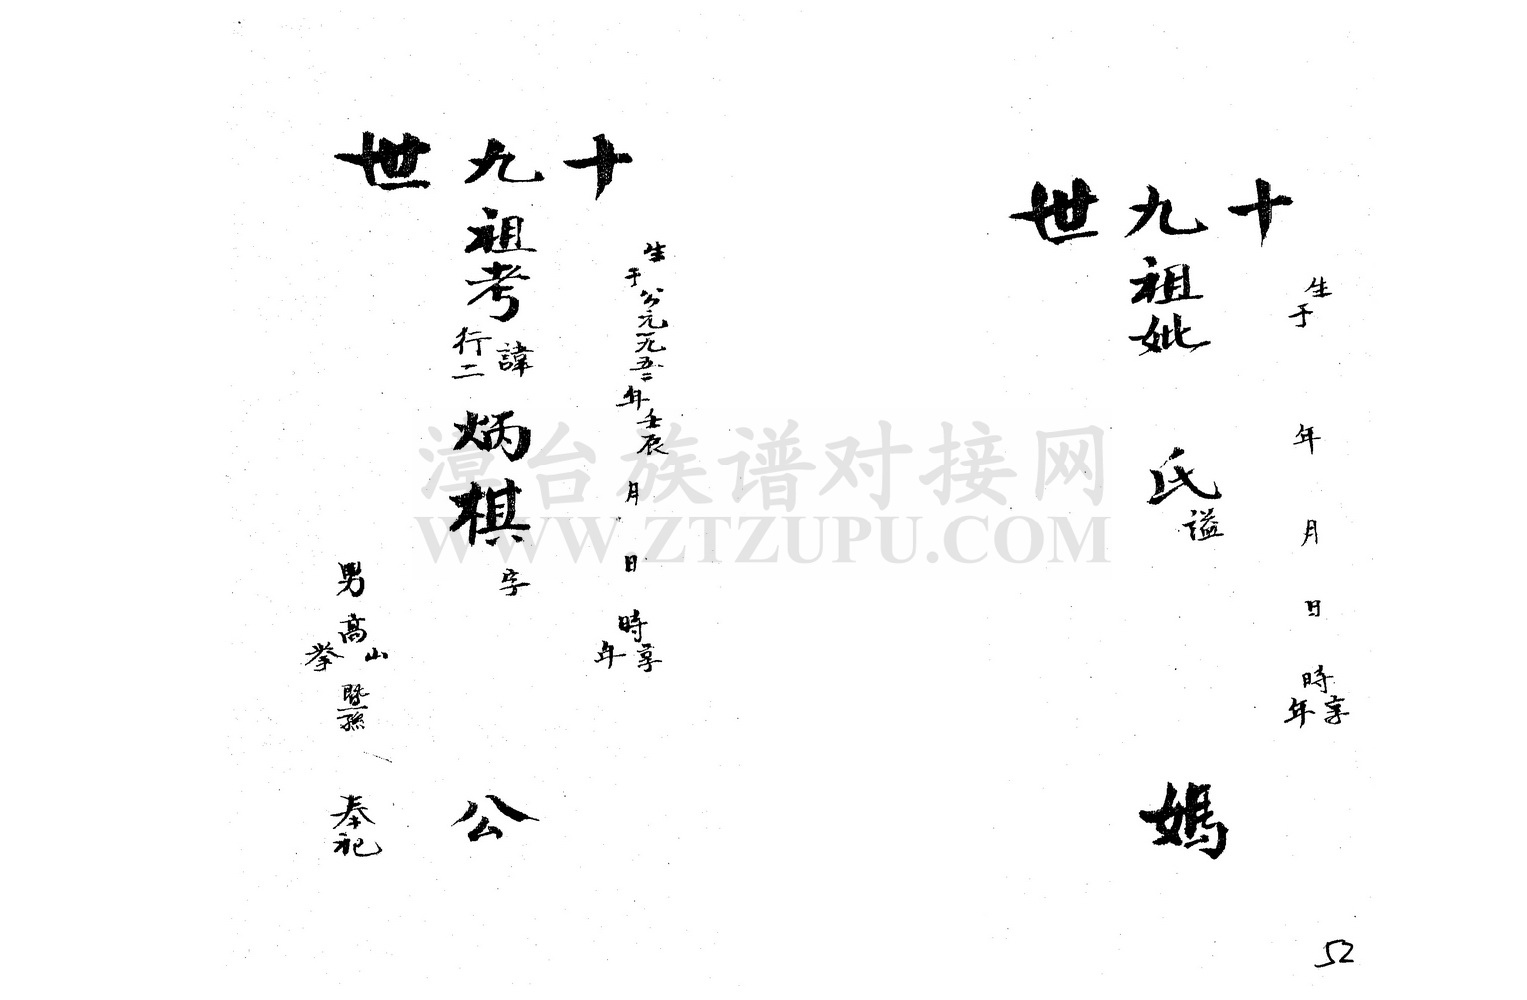 十九世
生于 年 月 日 時享年
祖妣 氏謚 媽
十九世
生于公元一九五二年壬辰 月 日 時享年
祖考諱行二炳棋字 公
男高山拳暨孫 奉祀
漳台族谱对接网
WWW.ZTZUPU.COM
52